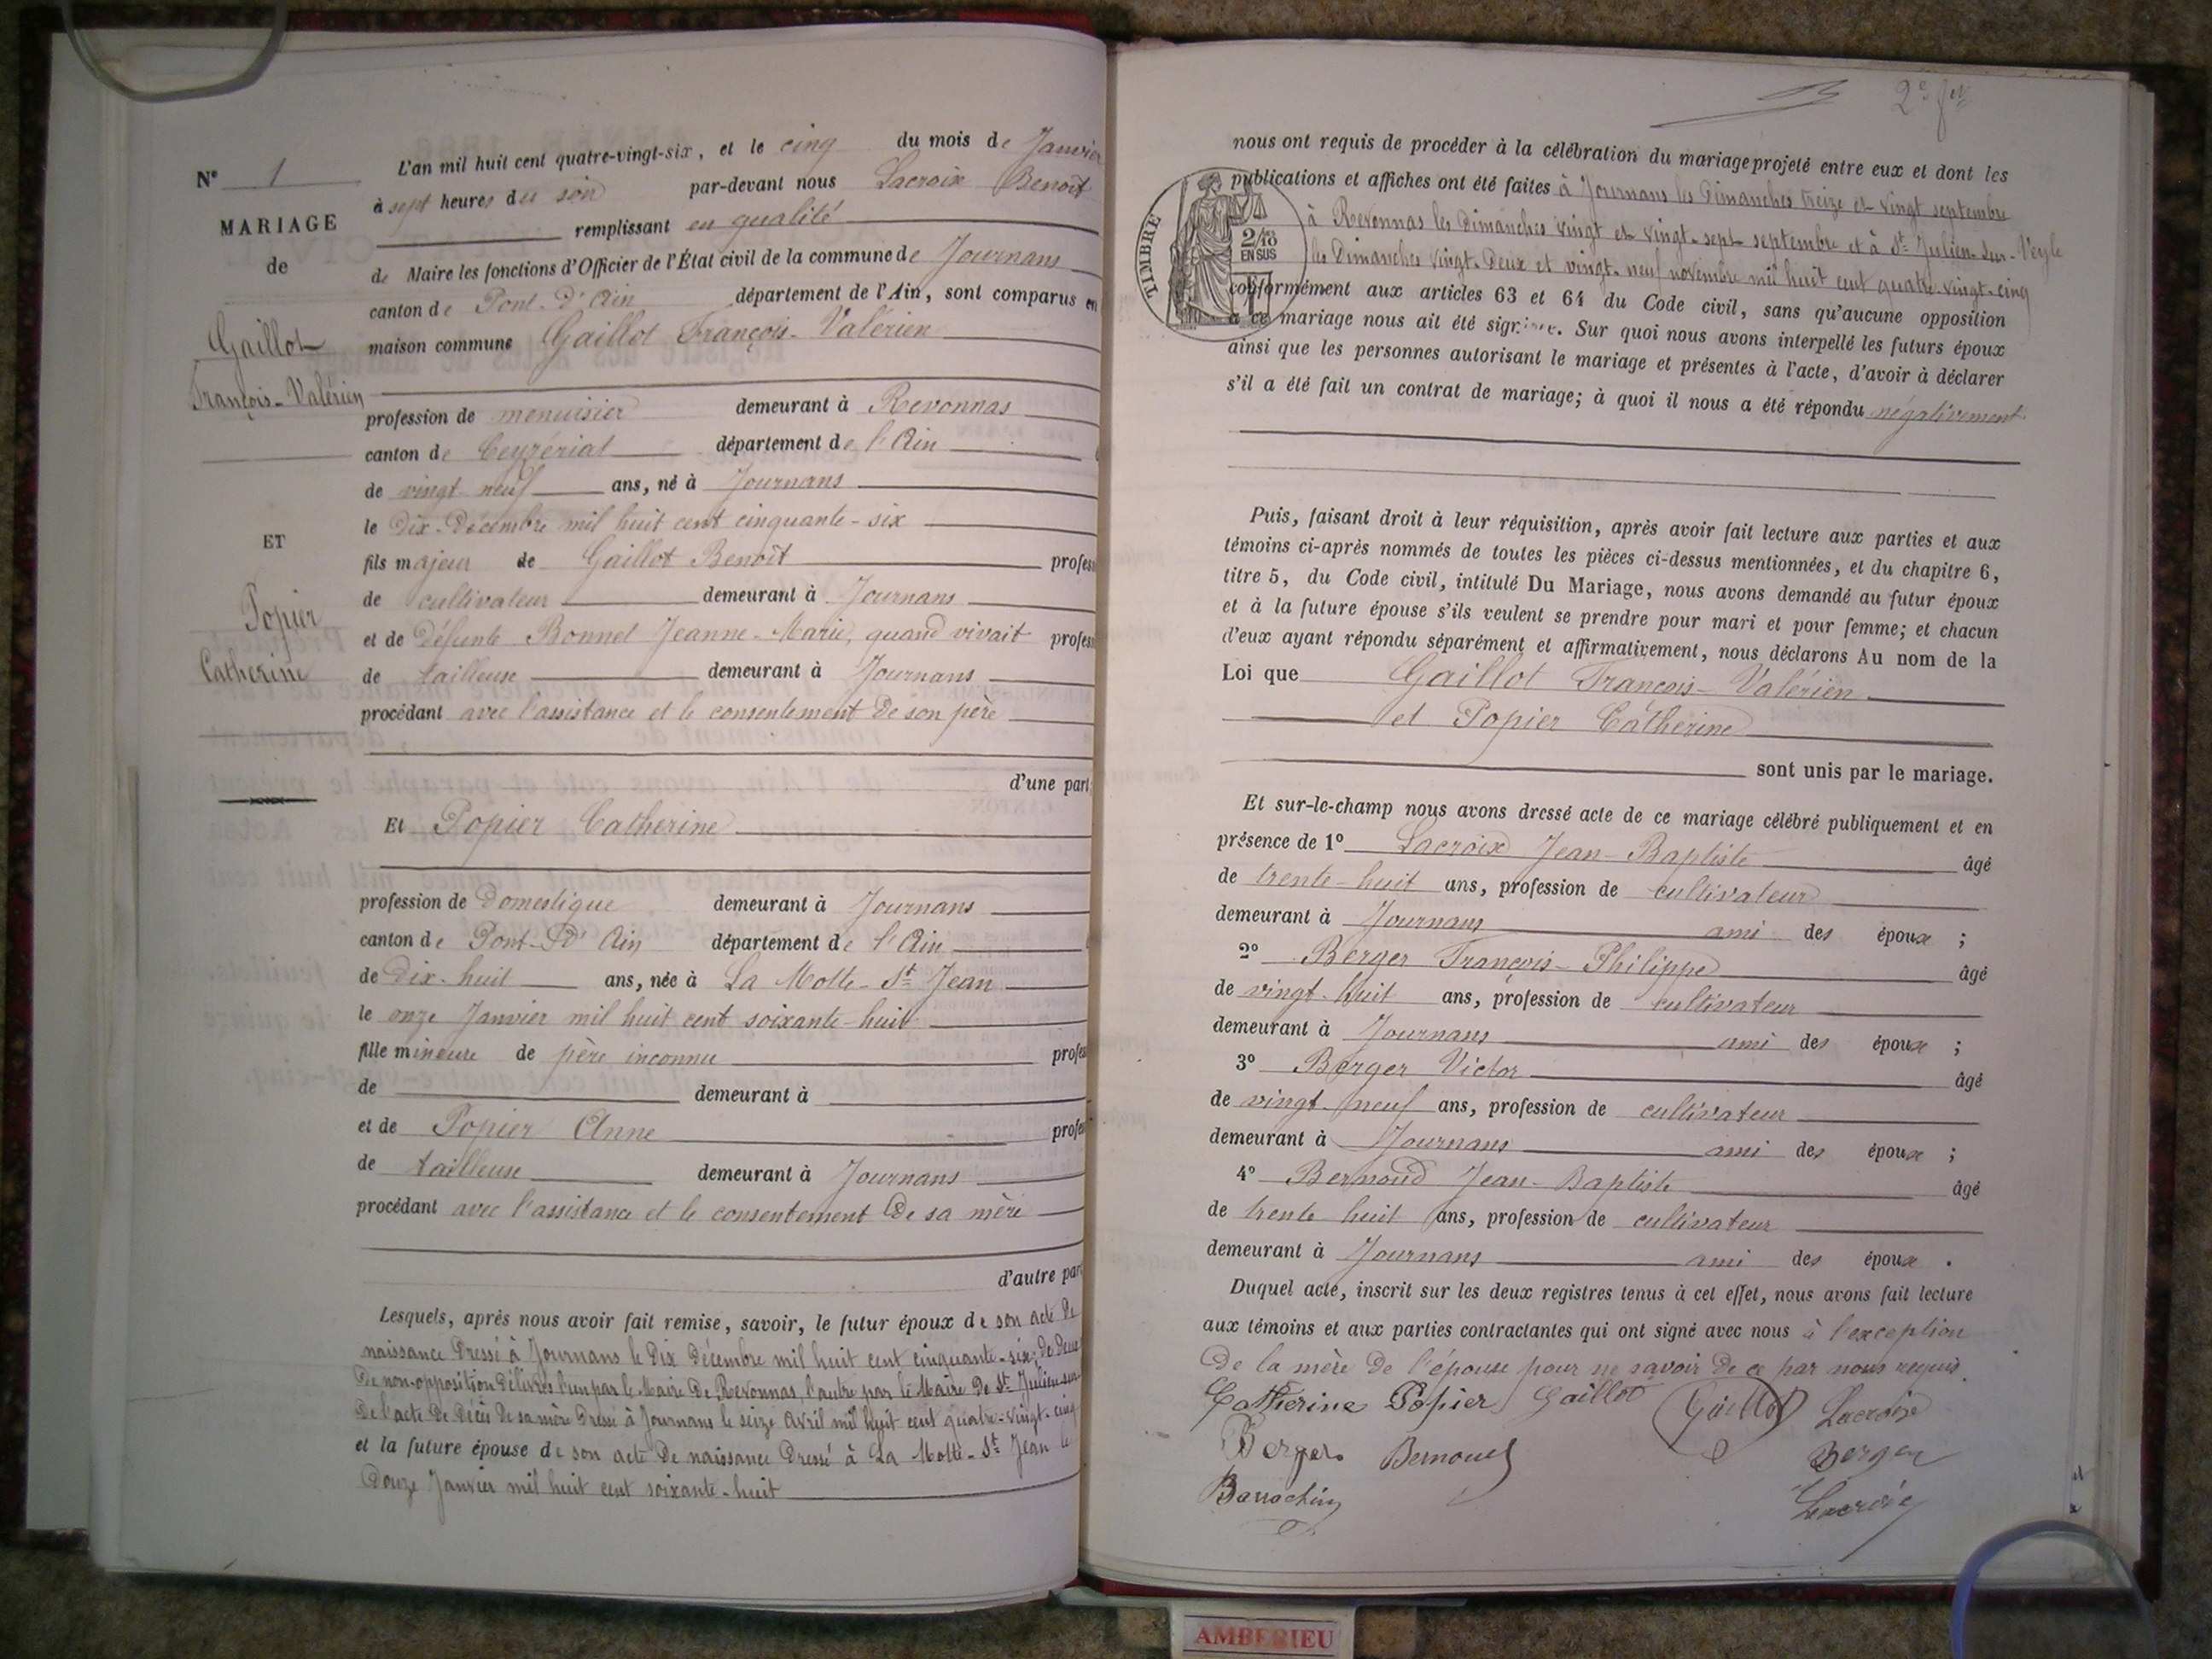 N° 1
MARIAGE
de
Gaillot
François-Valérien
ET
Popier
Catherine
L'an mil huit cent quatre-vingt-six, et le cinq du mois de Janvier
à sept heures du soir par-devant nous Lacroix Benoît
remplissant en qualité
de Maire les fonctions d'Officier de l'État civil de la commune de Journans
canton de Pont-d'Ain département de l'Ain, sont comparus en
maison commune Gaillot François-Valérien
profession de menuisier demeurant à Revonnas
canton de Ceyzériat département de l'Ain
de vingt neuf ans, né à Journans
le Dix-Décembre mil huit cent cinquante-six
fils majeur de Gaillot Benoît profess
de cultivateur demeurant à Journans
et de Défunte Bonnet Jeanne-Marie, quand vivait profess
de tailleuse demeurant à Journans
procédant avec l'assistance et le consentement de son père
d'une part
Et Popier Catherine
profession de Domestique demeurant à Journans
canton de Pont-D'Ain département de l'Ain
de Dix-huit ans, née à La Motte-St Jean
le onze Janvier mil huit cent soixante-huit
fille mineure de père inconnu profes
de demeurant à
et de Popier Anne profes
de tailleuse demeurant à Journans
procédant avec l'assistance et le consentement De sa mère
d'autre part
Lesquels, après nous avoir fait remise, savoir, le futur époux de son acte de
naissance Dressé à Journans le Dix Décembre mil huit cent cinquante-six, De Deux
De non-opposition Délivrés l'un par le Maire De Revonnas, l'autre par le Maire De St Julien sur
De l'acte De Décès De sa mère Dressé à Journans le seize avril mil huit cent quatre-vingt-cinq
et la future épouse de son acte De naissance Dressé à La Motte-St Jean le
Douze Janvier mil huit cent soixante-huit
nous ont requis de procéder à la célébration du mariage projeté entre eux et dont les
publications et affiches ont été faites à Journans les Dimanches treize et vingt septembre
à Revonnas les Dimanches vingt et vingt-sept septembre et à St Julien-sur-Veyle
les Dimanches vingt-Deux et vingt-neuf novembre mil huit cent quatre-vingt-cinq
TIMBRE
2/10
EN SUS
conformément aux articles 63 et 64 du Code civil, sans qu'aucune opposition
à ce mariage nous ait été signifiée. Sur quoi nous avons interpellé les futurs époux
ainsi que les personnes autorisant le mariage et présentes à l'acte, d'avoir à déclarer
s'il a été fait un contrat de mariage; à quoi il nous a été répondu négativement
Puis, faisant droit à leur réquisition, après avoir fait lecture aux parties et aux
témoins ci-après nommés de toutes les pièces ci-dessus mentionnées, et du chapitre 6,
titre 5, du Code civil, intitulé Du Mariage, nous avons demandé au futur époux
et à la future épouse s'ils veulent se prendre pour mari et pour femme; et chacun
d'eux ayant répondu séparément et affirmativement, nous déclarons Au nom de la
Loi que Gaillot François-Valérien
et Popier Catherine
sont unis par le mariage.
Et sur-le-champ nous avons dressé acte de ce mariage célébré publiquement et en
présence de 1° Lacroix Jean-Baptiste âgé
de trente-huit ans, profession de cultivateur
demeurant à Journans ami des époux ;
2° Berger François-Philippe âgé
de vingt-huit ans, profession de cultivateur
demeurant à Journans ami des époux ;
3° Berger Victor âgé
de vingt-neuf ans, profession de cultivateur
demeurant à Journans ami des époux ;
4° Bernoud Jean-Baptiste âgé
de trente huit ans, profession de cultivateur
demeurant à Journans ami des époux .
Duquel acte, inscrit sur les deux registres tenus à cet effet, nous avons fait lecture
aux témoins et aux parties contractantes qui ont signé avec nous à l'exception
De la mère De l'épouse pour ne savoir De ce par nous requis.
Catherine Popier Gaillot Gaillot Lacroix
Berger Bernoud Berger
Barrachin Lacroix
AMBERIEU